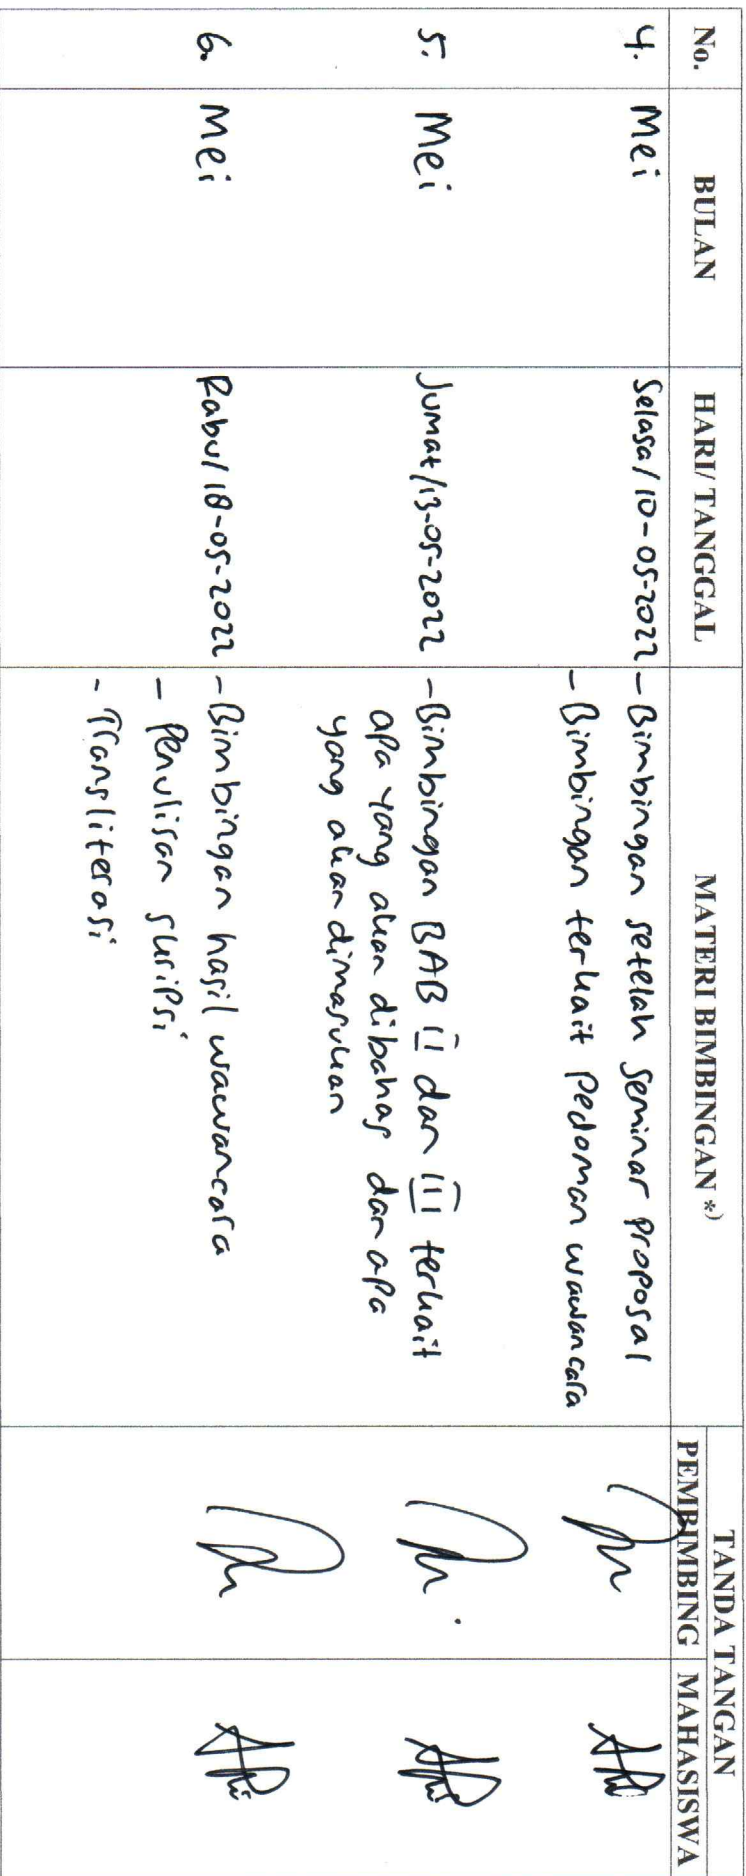 No. BULAN HARI/ TANGGAL MATERI BIMBINGAN *) TANDA TANGAN
PEMBIMBING MAHASISWA
4. Mei Selasa/10-05-2022 - Bimbingan setelah seminar proposal
- Bimbingan terkait pedoman wawancara
5. Mei Jumat/13-05-2022 - Bimbingan BAB II dan III terkait
apa yang akan dibahas dan apa
yang akan dimasukan
6. Mei Rabu/18-05-2022 - Bimbingan hasil wawancara
- Penulisan skripsi
- Transliterasi